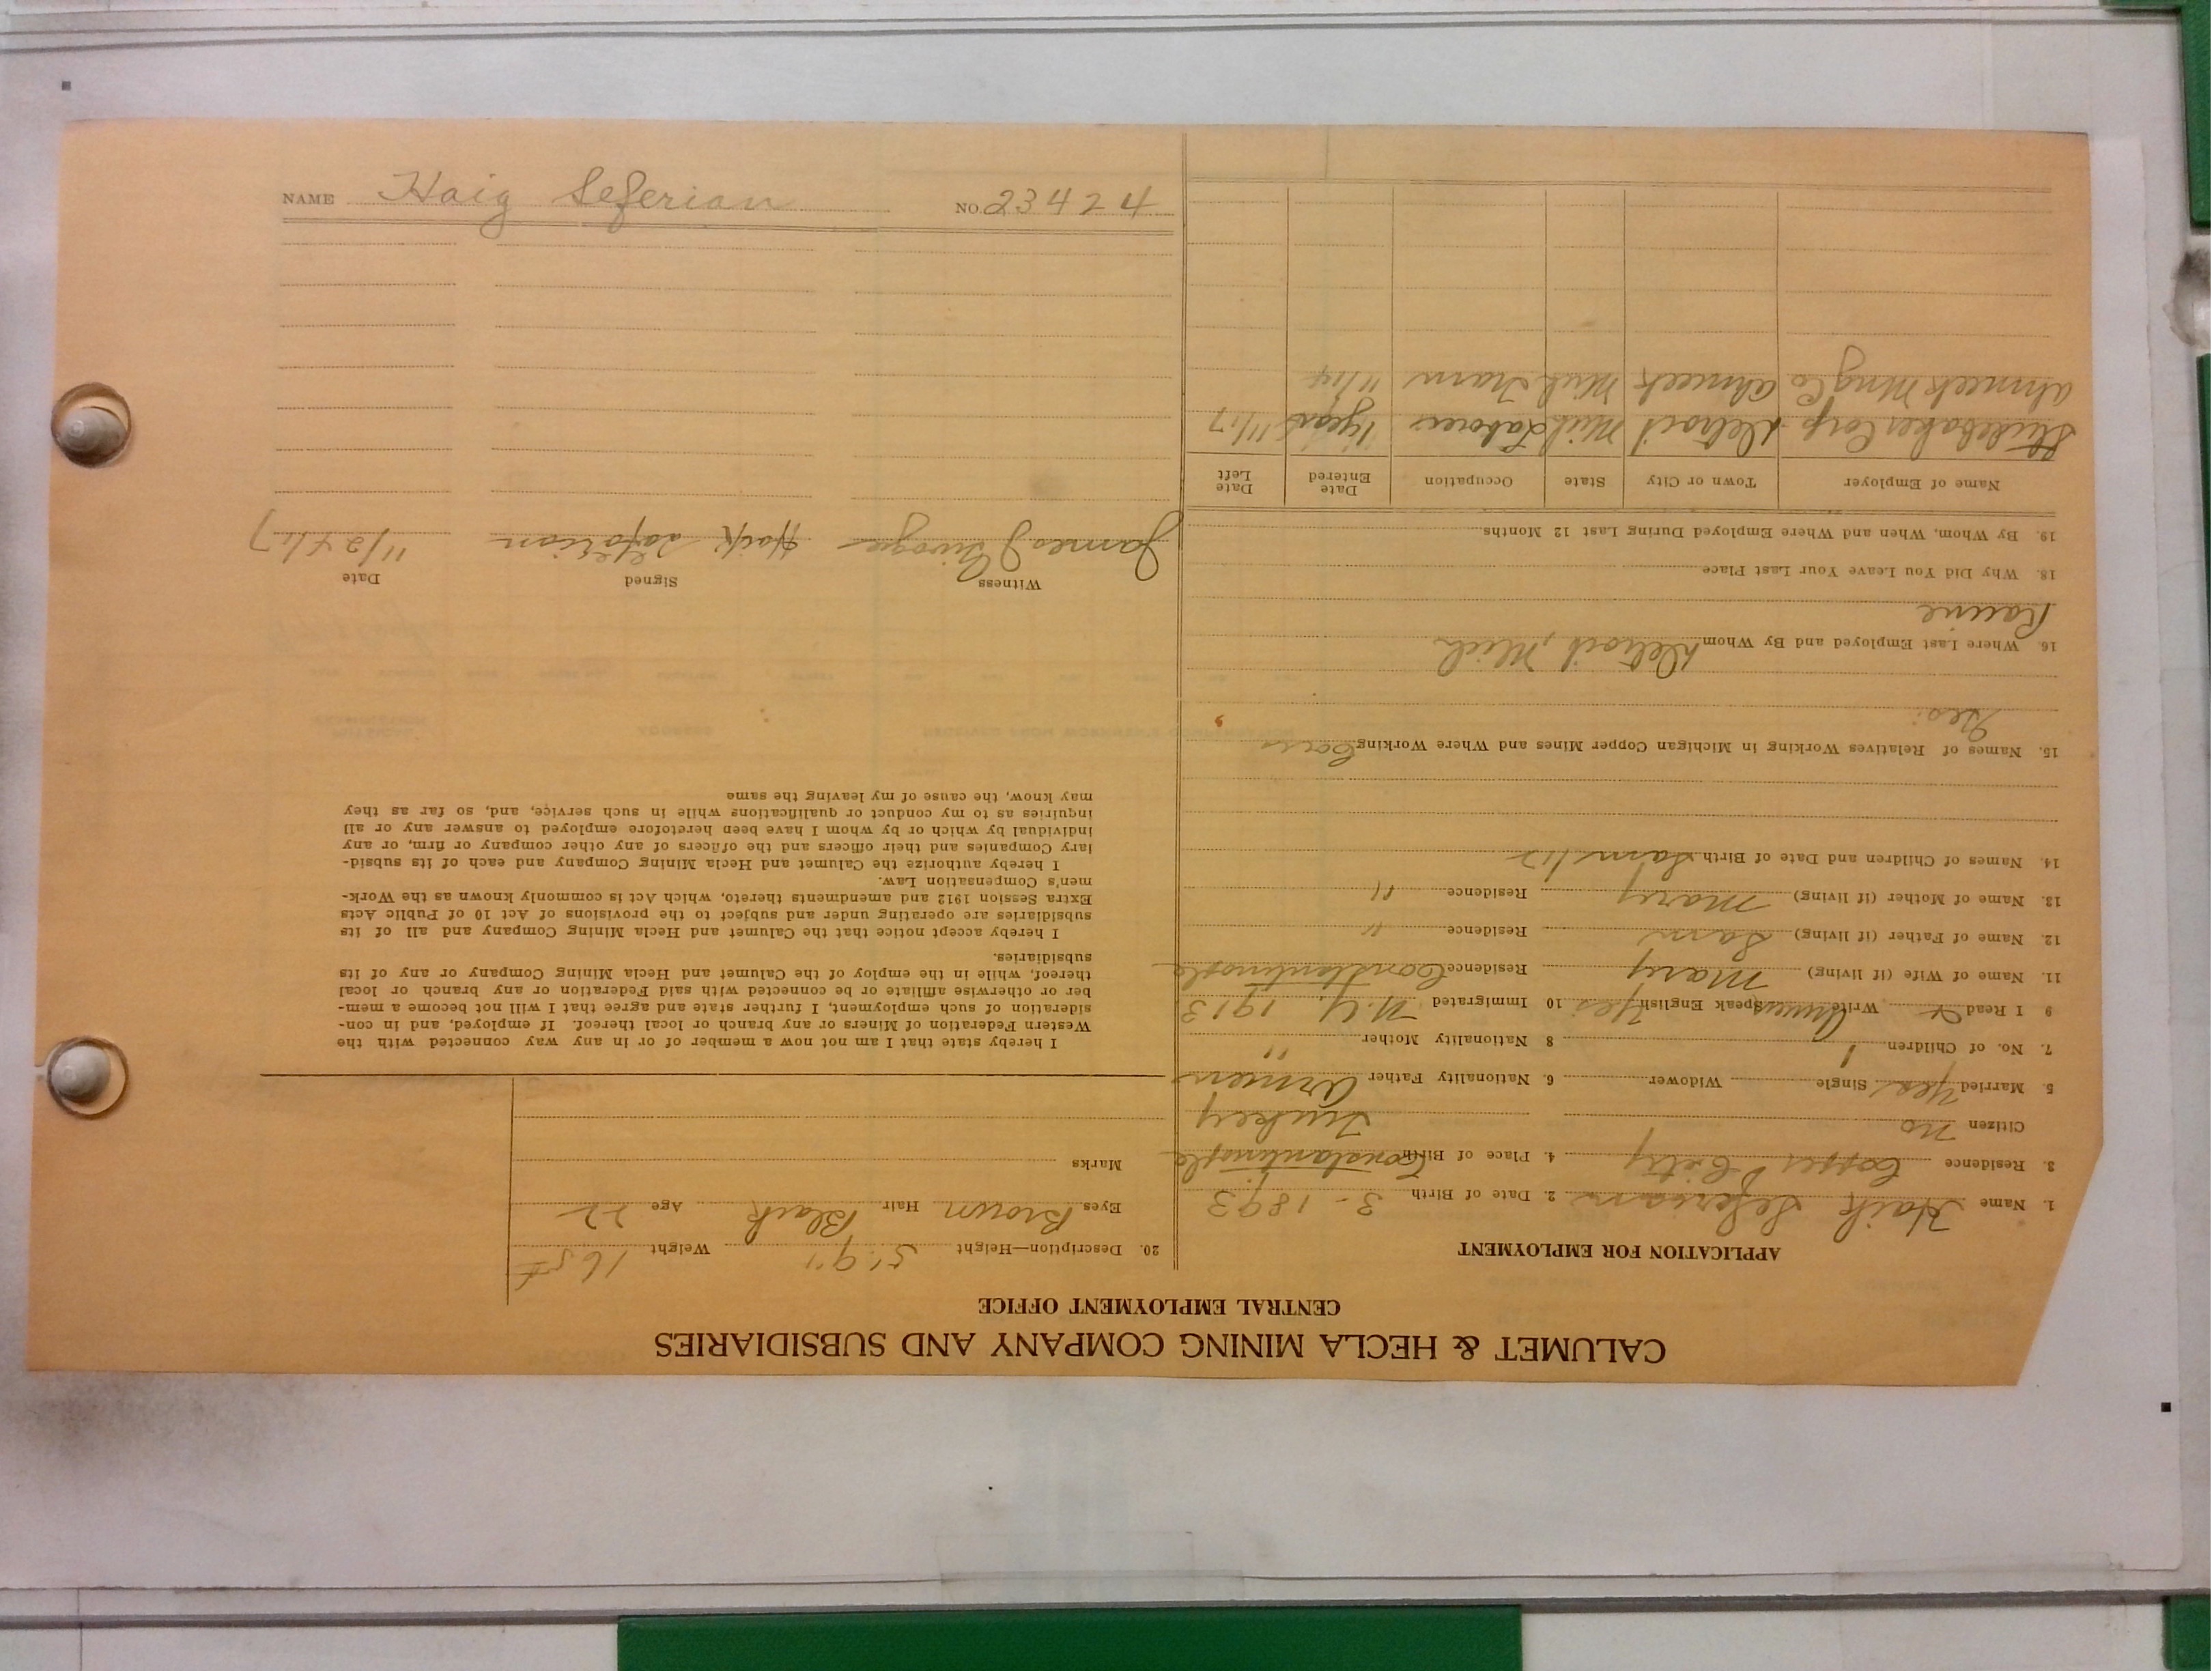 CALUMET & HECLA MINING COMPANY AND SUBSIDIARIES
CENTRAL EMPLOYMENT OFFICE
APPLICATION FOR EMPLOYMENT
1. Name Haik Seferian 2. Date of Birth 3-1893
3. Residence Copper City 4. Place of Birth Constantinople
Citizen no Turkey
5. Married Yes Single Widower 6. Nationality Father Armen
7. No. of Children 1 8 Nationality Mother "
9 I Read & Write Armen Speak English Yes 10 Immigrated N.Y. 1913
11. Name of Wife (if living) Mary Residence Constantinople
12. Name of Father (if living) Sam Residence "
13. Name of Mother (if living) Mary Residence "
14. Names of Children and Date of Birth Sam 1/12
15. Names of Relatives Working in Michigan Copper Mines and Where Working Cous
Geo.
16. Where Last Employed and By Whom Detroit, Mich
18. Why Did You Leave Your Last Place
19. By Whom, When and Where Employed During Last 12 Months
Name of Employer Town or City State Occupation Date Entered Date Left
Studebaker Corp Detroit Mich Laborer 1 year 11/17
Ahmeek Mng Co Ahmeek Mich Tram 11/14
20. Description—Height 5'9" Weight 165#
Eyes Brown Hair Black Age 22
Marks
I hereby state that I am not now a member of or in any way connected with the
Western Federation of Miners or any branch or local thereof. If employed, and in con-
sideration of such employment, I further state and agree that I will not become a mem-
ber or otherwise affiliate or be connected with said Federation or any branch or local
thereof, while in the employ of the Calumet and Hecla Mining Company or any of its
subsidiaries.
I hereby accept notice that the Calumet and Hecla Mining Company and all of its
subsidiaries are operating under and subject to the provisions of Act 10 of Public Acts
Extra Session 1912 and amendments thereto, which Act is commonly known as the Work-
men's Compensation Law.
I hereby authorize the Calumet and Hecla Mining Company and each of its subsid-
iary Companies and their officers and the officers of any other company or firm, or any
individual by which or by whom I have been heretofore employed to answer any or all
inquiries as to my conduct or qualifications while in such service, and, so far as they
may know, the cause of my leaving the same
Witness Signed Date
James J Haik Seferian 11/24/17
NAME Haig Seferian NO. 23424